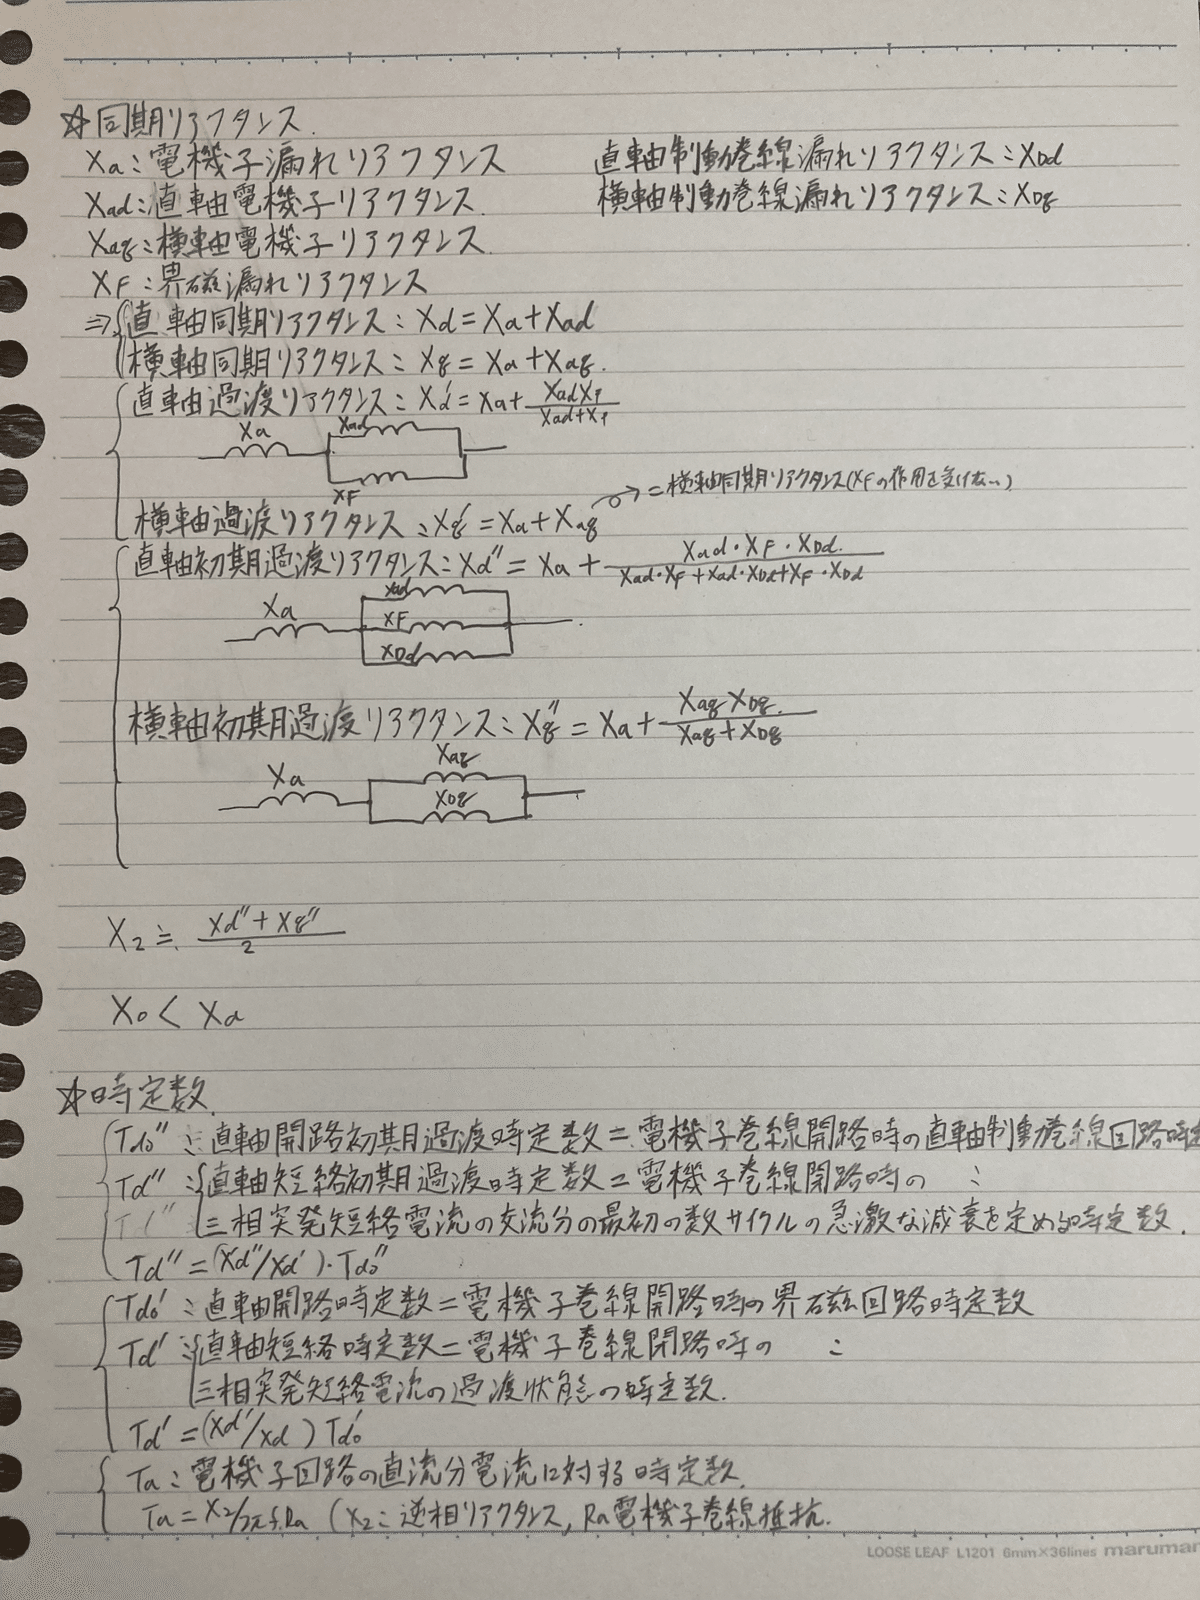 ☆同期リアクタンス.
Xa：電機子漏れリアクタンス
直軸制動巻線漏れリアクタンス：XDd
Xad：直軸電機子リアクタンス.
横軸制動巻線漏れリアクタンス：XDq
Xaq：横軸電機子リアクタンス.
XF：界磁漏れリアクタンス
⇒直軸同期リアクタンス：Xd=Xa+Xad
横軸同期リアクタンス：Xq=Xa+Xaq.
直軸過渡リアクタンス：Xd'=Xa+XadXf/(Xad+Xf)
Xa Xad
XF
→=横軸同期リアクタンス(XFの作用を受けない)
横軸過渡リアクタンス：Xq'=Xa+Xaq
直軸初期過渡リアクタンス：Xd''=Xa+Xad・XF・XDd/(Xad・XF+Xad・XDd+XF・XDd)
Xad
Xa XF
XDd
横軸初期過渡リアクタンス：Xq''=Xa+XaqXDq/(Xaq+XDq)
Xaq
Xa XDq
X2≒(Xd''+Xq'')/2
X0<Xa
☆時定数.
Tdo''：直軸開路初期過渡時定数=電機子巻線開路時の直軸制動巻線回路時定
Td''：直軸短絡初期過渡時定数=電機子巻線閉路時の 〃
三相突発短絡電流の交流分の最初の数サイクルの急激な減衰を定める時定数.
Td''=(Xd''/Xd')・Tdo''
Tdo'：直軸開路時定数=電機子巻線開路時の界磁回路時定数
Td'：直軸短絡時定数=電機子巻線閉路時の 〃
三相突発短絡電流の過渡状態の時定数.
Td'=(Xd'/Xd)Tdo'
Ta：電機子回路の直流分電流に対する時定数.
Ta=X2/2πfRa (X2：逆相リアクタンス, Ra電機子巻線抵抗.
LOOSE LEAF L1201 6mm×36lines maruman